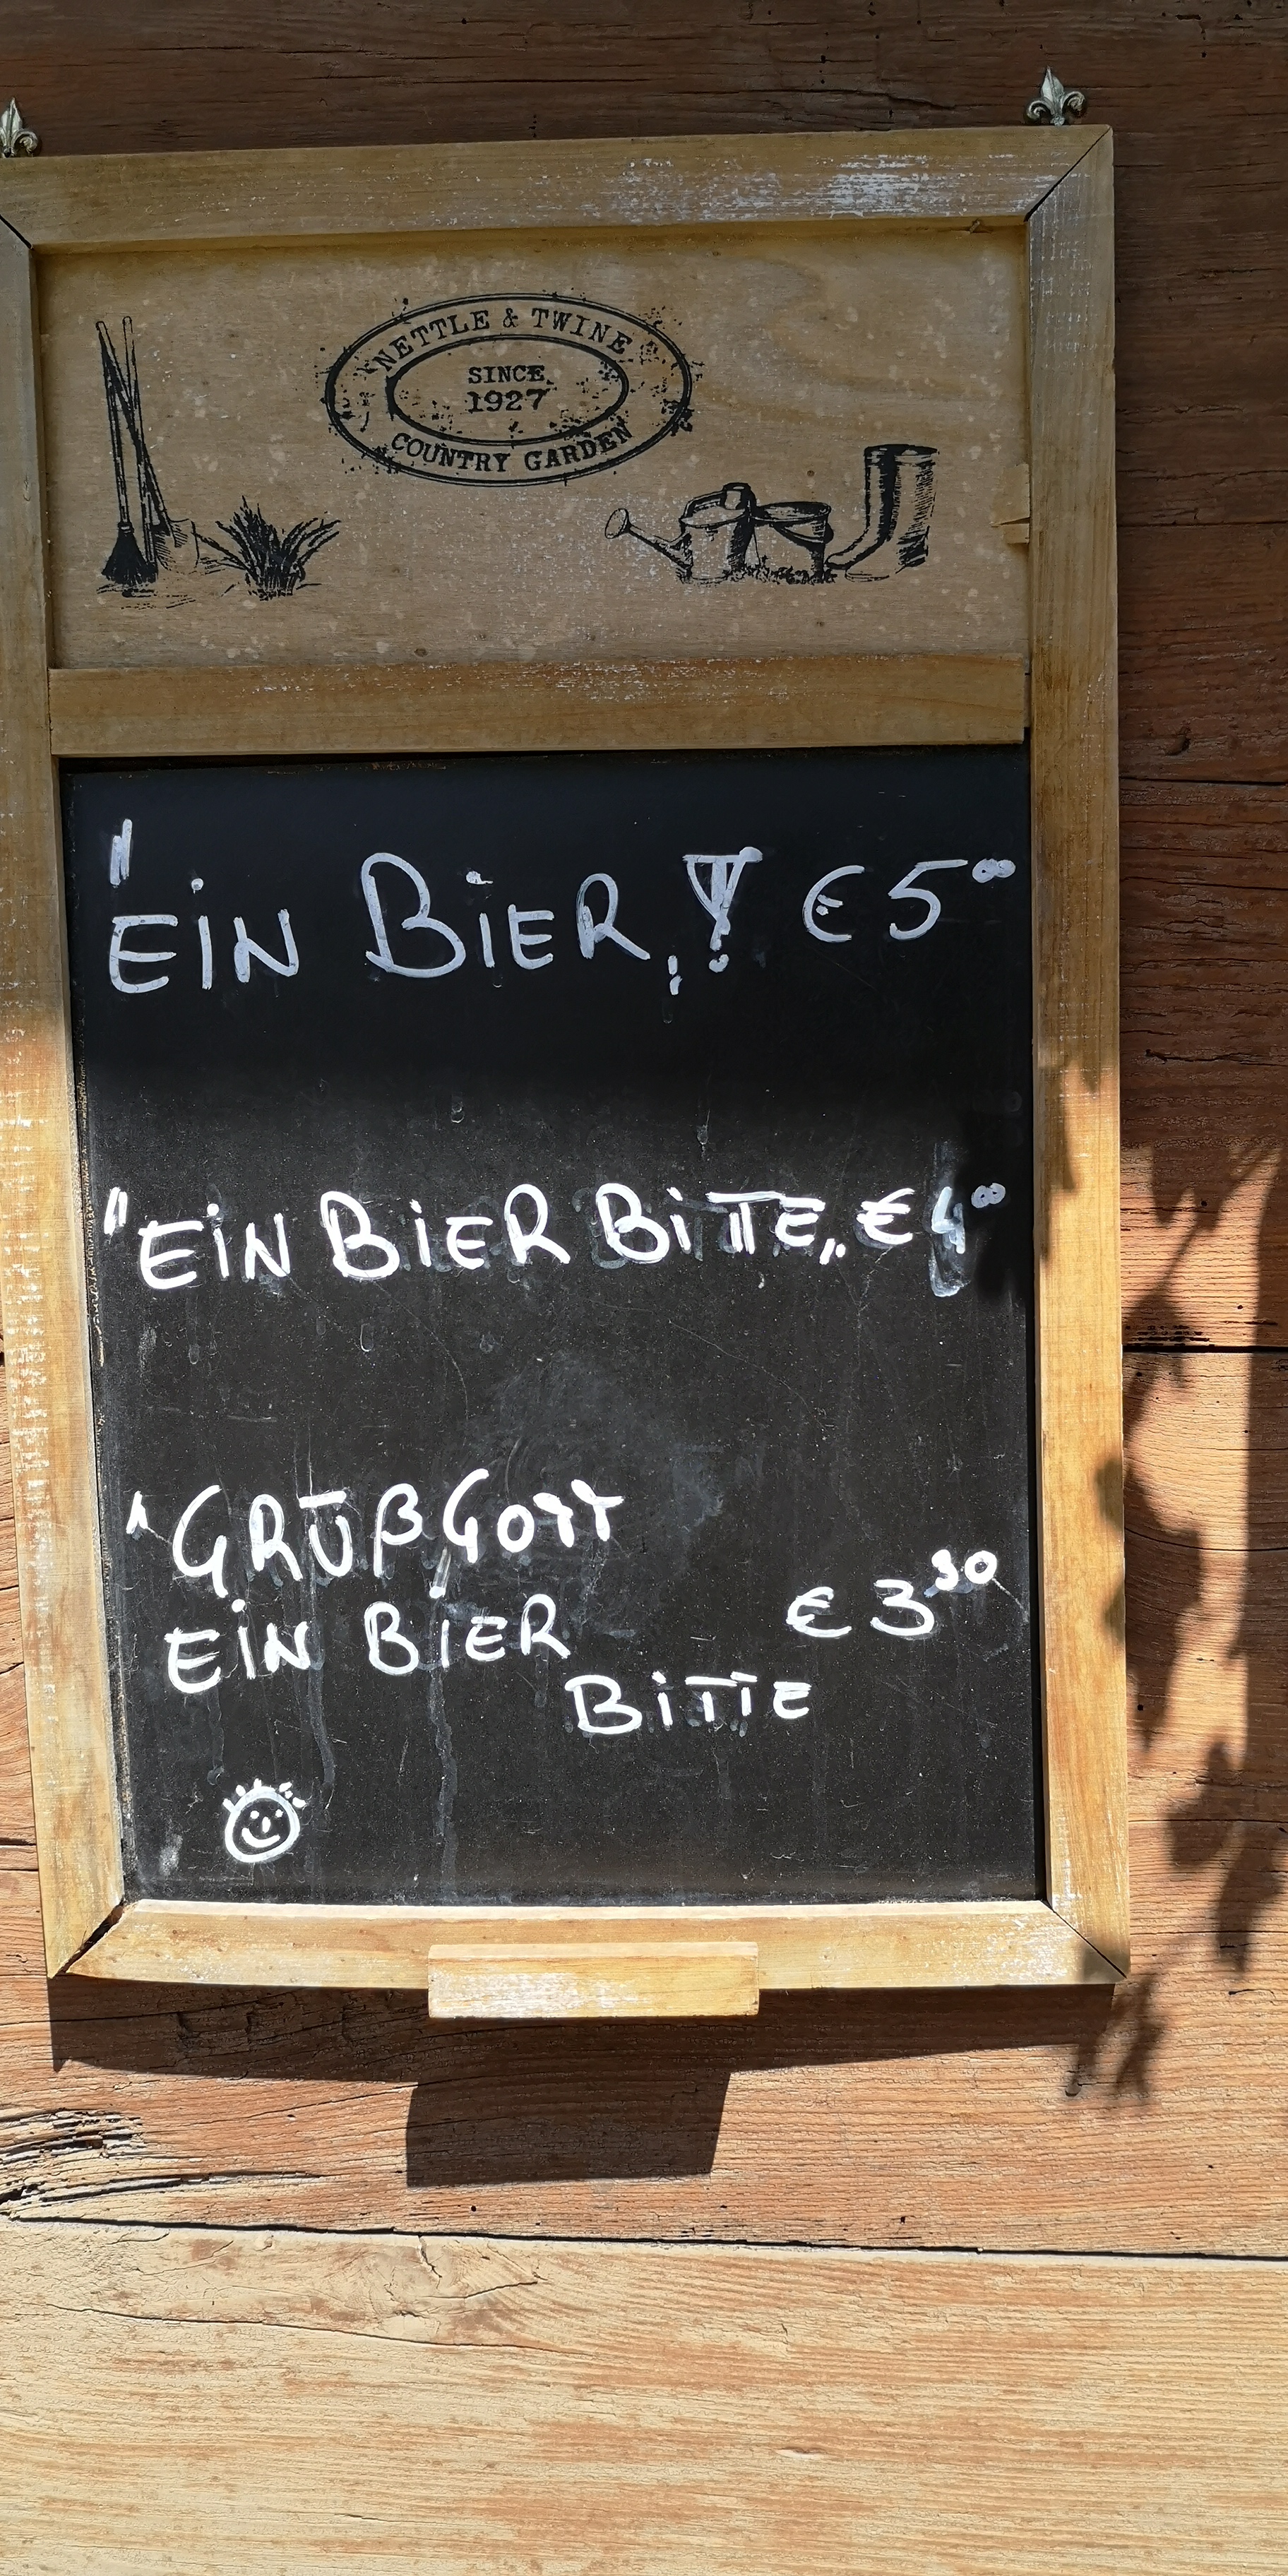 NETTLE & TWINE
SINCE
1927
COUNTRY GARDEN
"EIN BIER,! € 5⁰⁰
"EIN BIER BITTE,, € 4⁰⁰
"GRÜß GOTT
EIN BIER
BITTE
€ 3³⁰